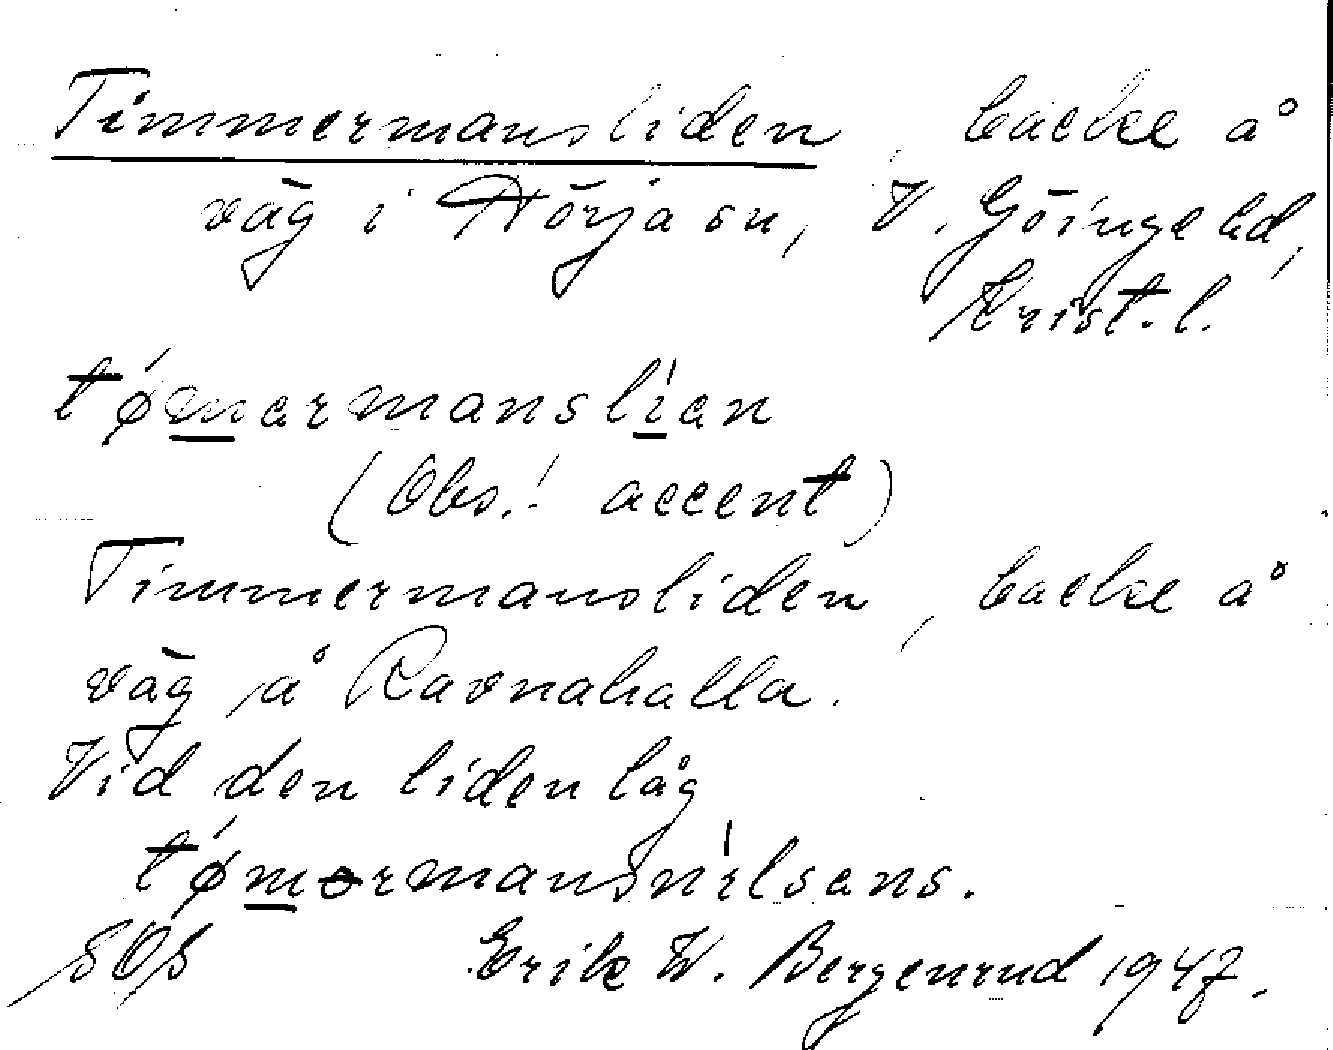 Timmermansliden, backe å
väg i Hörja sn, V. Göinge hd,
Krist. l.
tǿmermanslíen
(Obs.! accent)
Timmermansliden, backe å
väg å Ravnahalla.
Vid den liden låg
tǿmermansnílsens.
SOS Erik W. Bergenrud 1947.